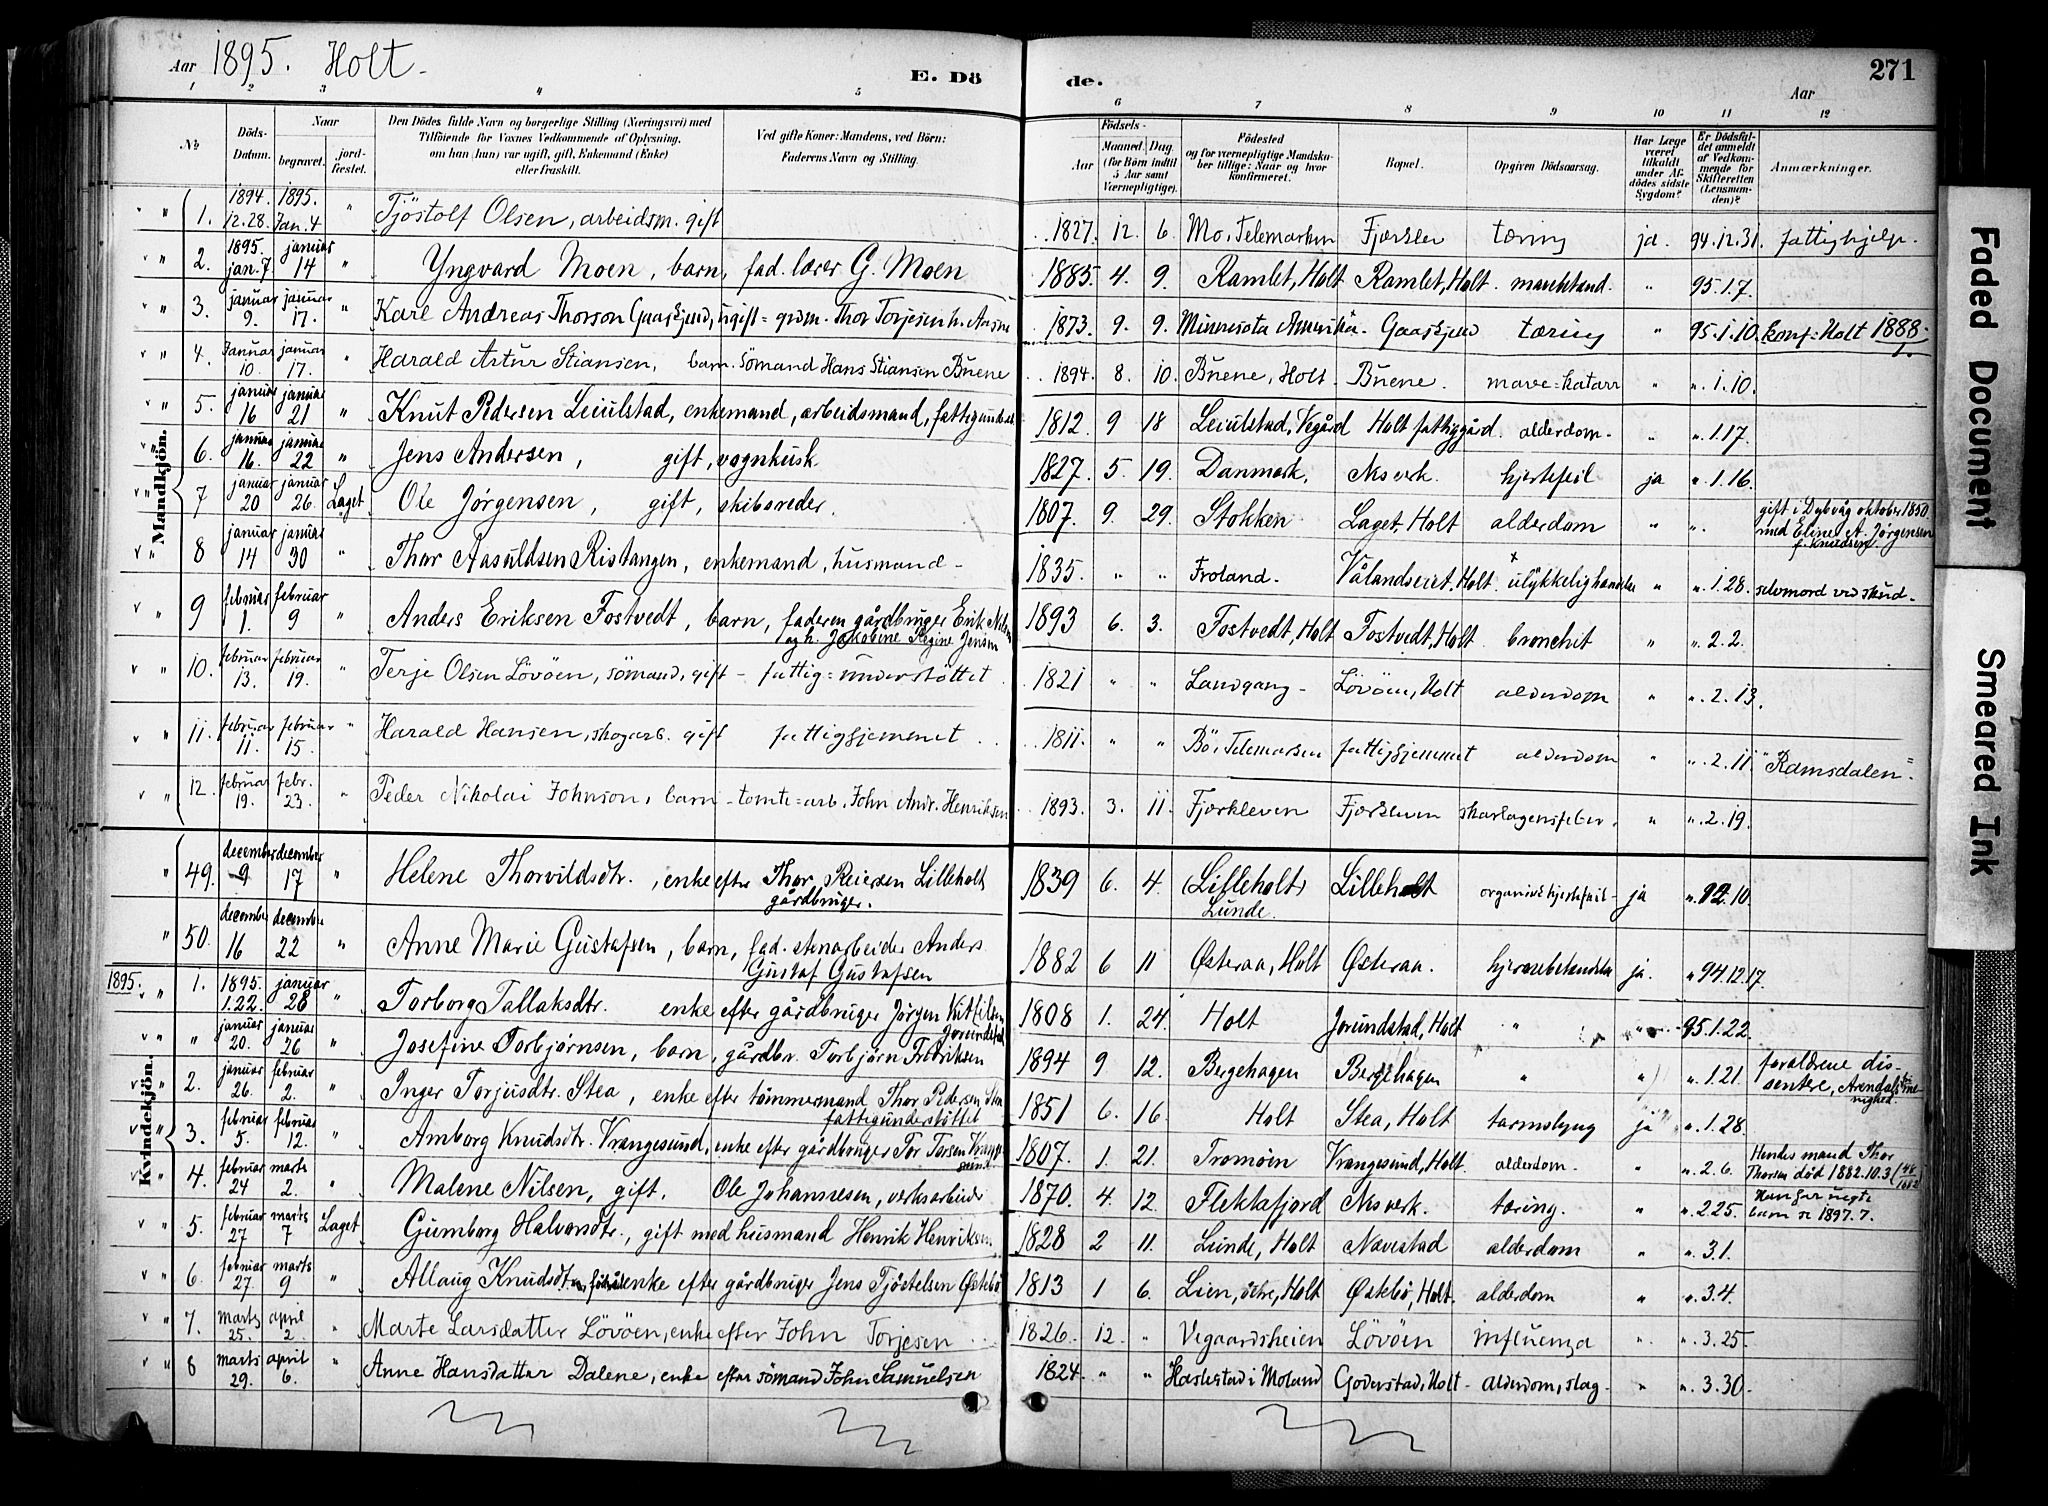 Aar 1895. Holt.
E. Dö de.
271
Aar
1 2 3 4 5 6 7 8 9 10 11 12
No
Döds-Datum.
Naar
begravet.
jord-fæstet.
Den Dödes fulde Navn og borgerlige Stilling (Næringsvei) med
Tilföiende for Voxnes Vedkommende af Oplysning,
om han (hun) var ugift, gift, Enkemand (Enke)
eller fraskilt.
Ved gifte Koner: Mandens, ved Börn:
Faderens Navn og Stilling.
Födsels-
Aar
Maaned. Dag.
(for Börn indtil
5 Aar samt
Værnepligtige).
Födested
og for værnepligtige Mandska-
ber tillige: Naar og hvor
konfirmeret.
Bopæl.
Opgiven Dödsaarsag.
Har Læge
været
tilkaldt
under Af-
dödes sidste
Sygdom?
Er Dödsfal-
det anmeldt
af Vedkom-
mende for
Skifteretten
(Lensman-
den)?
Anmærkninger.
Mandkjön.
1. 1894. 12.28. 1895. Jan. 4 " Tjöstolf Olsen, arbeidsm. gift 1827. 12. 6. Mo, Telemarken tæring ja. 94.12.31. fattighjelp.
2. 1895. jan. 7 januar 14 " Yngvard Moen, barn, fad. lærer G. Moen 1885. 4. 9. Ramlet, Holt Ramlet, Holt. " 95.1.7.
3. januar 9. januar 17. " Karl Andreas Thorson Gaaskjend, ugift = Thor Torjesen 1873. 9. 9. Minnesota Amerika. Gaaskjend tæring " 95.1.10. konf. Holt 1888
4. Januar 10. januar 17. " Harald Artur Stiansen, barn. sömand Hans Stiansen Buene 1894. 8. 10. Buene, Holt. Buene. mave=katarr " ". 1.10.
5. januar 16 januar 21 " Knut Pedersen Leiulstad, enkemand, arbeidsmand, 1812. 9 18 Leiulstad, Vegård Holt fattiggård. alderdom. " ". 1.17.
6. januar 16. januar 22 " Jens Andersen, gift, vognkusk. 1827. 5. 19. Danmark. Nsverk. hjertefeil ja ". 1.16.
7 januar 20 januar 26. Laget Ole Jörgensen, gift, skibsreder. 1807. 9. 29. Stokken Laget, Holt alderdom " ". gift i Dybvåg oktober 1850
med Eline A. Jörgensen
f. Knudsen.
8 januar 14 januar 30 " Thor Aasuldsen Ristangen, enkemand, husmand - 1835. " " Froland. Vålandseiet, Holt. ulykkelig " ". 1.28. selvmord ved skud.
9 februar 1. februar 9 " Anders Eriksen Fostvedt, barn, faderen gårdbruger Erik Nilsen
og h. Jakobine Regine Jensen 1893 6. 3. Fostvedt, Holt Fostvedt, Holt bronchit " ". 2.2.
10. februar 13. februar 19. " Terje Olsen Lövöen, sömand, gift - fattig=understöttet 1821 " " Landgang - Lövöen, Holt alderdom " ". 2.13.
11. februar 11. februar 15. " Harald Hansen, skogarb. gift fattighjemmet 1811. " " Bö, Telemarken fattighjemmet alderdom " ". 2.11. "Ramsdalen"
12. februar 19. febr. 23. " Peder Nikolai Johnson, barn - tomte=arb. John Andr. Henriksen 1893. 3. 11. Fjærkleven Fjærkleven skarlagensfeber. " ". 2.19.
Kvindekjön.
49. december 9 december 17 " Helene Thorvildsdtr., enke efter Thor Reiersen Lilleholt
gårdbruger. 1839 6. 4. (Lilleholt)
Lunde. Lilleholt organisk hjertefeil - ja ". 12.10.
50. december 16 december 22 " Anne Marie Gustafsen, barn, fad. stenarbeider Anders
Gustaf Gustafsen 1882 6 11 Østeraa, Holt Østeraa. ja. " 94.12.17.
1895. 1. 1895. 1.22. januar 28 " Torborg Tallaksdtr. enke efter gårdbruger Jörgen Kittilsen
Jorundstad 1808 1. 24. Holt Jorundstad, Holt " " 95.1.22.
" januar 20. januar 26 " Josefine Torbjörnsen, barn, gårdbr. Torbjörn Fredriksen 1894 9 12. Bergehagen Bergehagen " " ". 1.21. forældrene dis-
sentere, Arendals me-
nighed.
2. januar 26. februar 2. " Inger Torjusdtr. Stea, enke efter tömmermand Thor Pedersen Stea
fattigunderstöttet 1851 6. 16 Holt Stea, Holt tarmslyng ja ". 1.28.
3. februar 5. februar 12. " Amborg Knudsdtr. Vrangesund, enke efter gårdbruger Tor Torsen 1807. 1. 21. Tromöen Vrangesund, Holt. alderdom. " ". 2.6. Hendes mand Thor
Thorsen död 1882.10.3 (48/1882)
4. februar 24 marts 2. " Malene Nilsen, gift. Ole Johannesen, verksarbeider 1870. 4. 12. Flekkefjord Nsverk. tæring. " ". 2.25. Han gar
barn se 1897.7.
5. februar 27 marts 7 Laget Gumborg Halvorsdtr., gift med husmand Henrik Henriksen 1828 2 11. Lunde, Holt Navestad alderdom " ". 3.1.
6. februar 27. marts 9 " Allaug Knudsdtr. enke efter gårdbruger Jens Tjöstelsen Østebö 1813 1 6. Lien, Holt Østebö, Holt. alderdom " ". 3.4.
7. marts 25. april 2. " Marte Larsdatter Lövöen, enke efter John Torjesen 1826. 12. " Vegaardsheien Lövöen influenza " ". 3.25.
8 marts 29. april 6. " Anne Hansdatter Dalene, enke efter sömand John Samuelsen 1824. " " i Moland Goderstad, Holt - alderdom, slag. " ". 3.30.
Faded Document
Smeared Ink